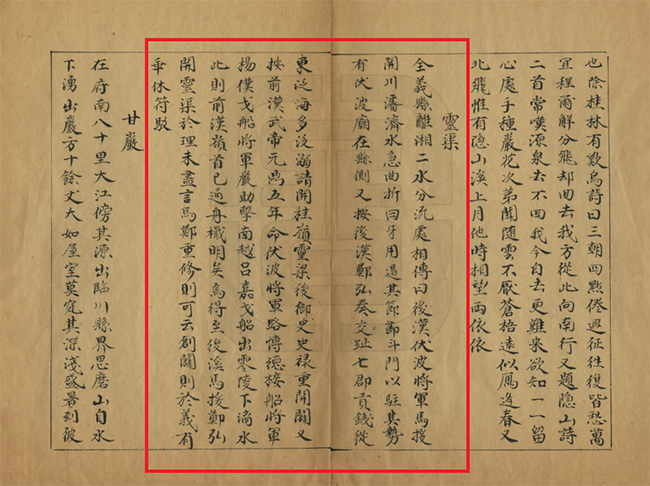 也除桂林有歎烏詩曰三朝四黜倦遐征往復皆愁萬
里程爾解分飛却回去我方從此向南行又題隱山詩
二首常嘆源泉去不回我今自去更難來欲知一一留
心處手種巖花次第開隨雲不厭蒼梧遠似鴈逢春又
北飛惟有隱山溪上月他時相望兩依依
靈渠
全義縣離湘二水分流處相傳曰後漢伏波將軍馬援
開川濬濟水急曲折曰牙用遏其節斵斗門以駐其勢
有伏波廟在縣側又按後漢鄭弘奏交趾七郡貢錢從
東泛海多沒溺請開桂嶺靈渠後御史史祿重開闢又
按前漢武帝元鼎五年命伏波將軍路博德樓船將軍
揚僕戈船將軍嚴助擊南越呂嘉戈船出零陵下漓水
此則前漢嶺首已通舟檝明矣焉得至後漢馬援鄭弘
開靈渠於理未盡言馬鄭重修則可云創闢則於義有
乖休符駁
甘巖
在府南八十里大江傍其源出臨川縣界思磨山自水
下湧出巖方十餘丈大如屋室莫究其深淺盛暑到彼